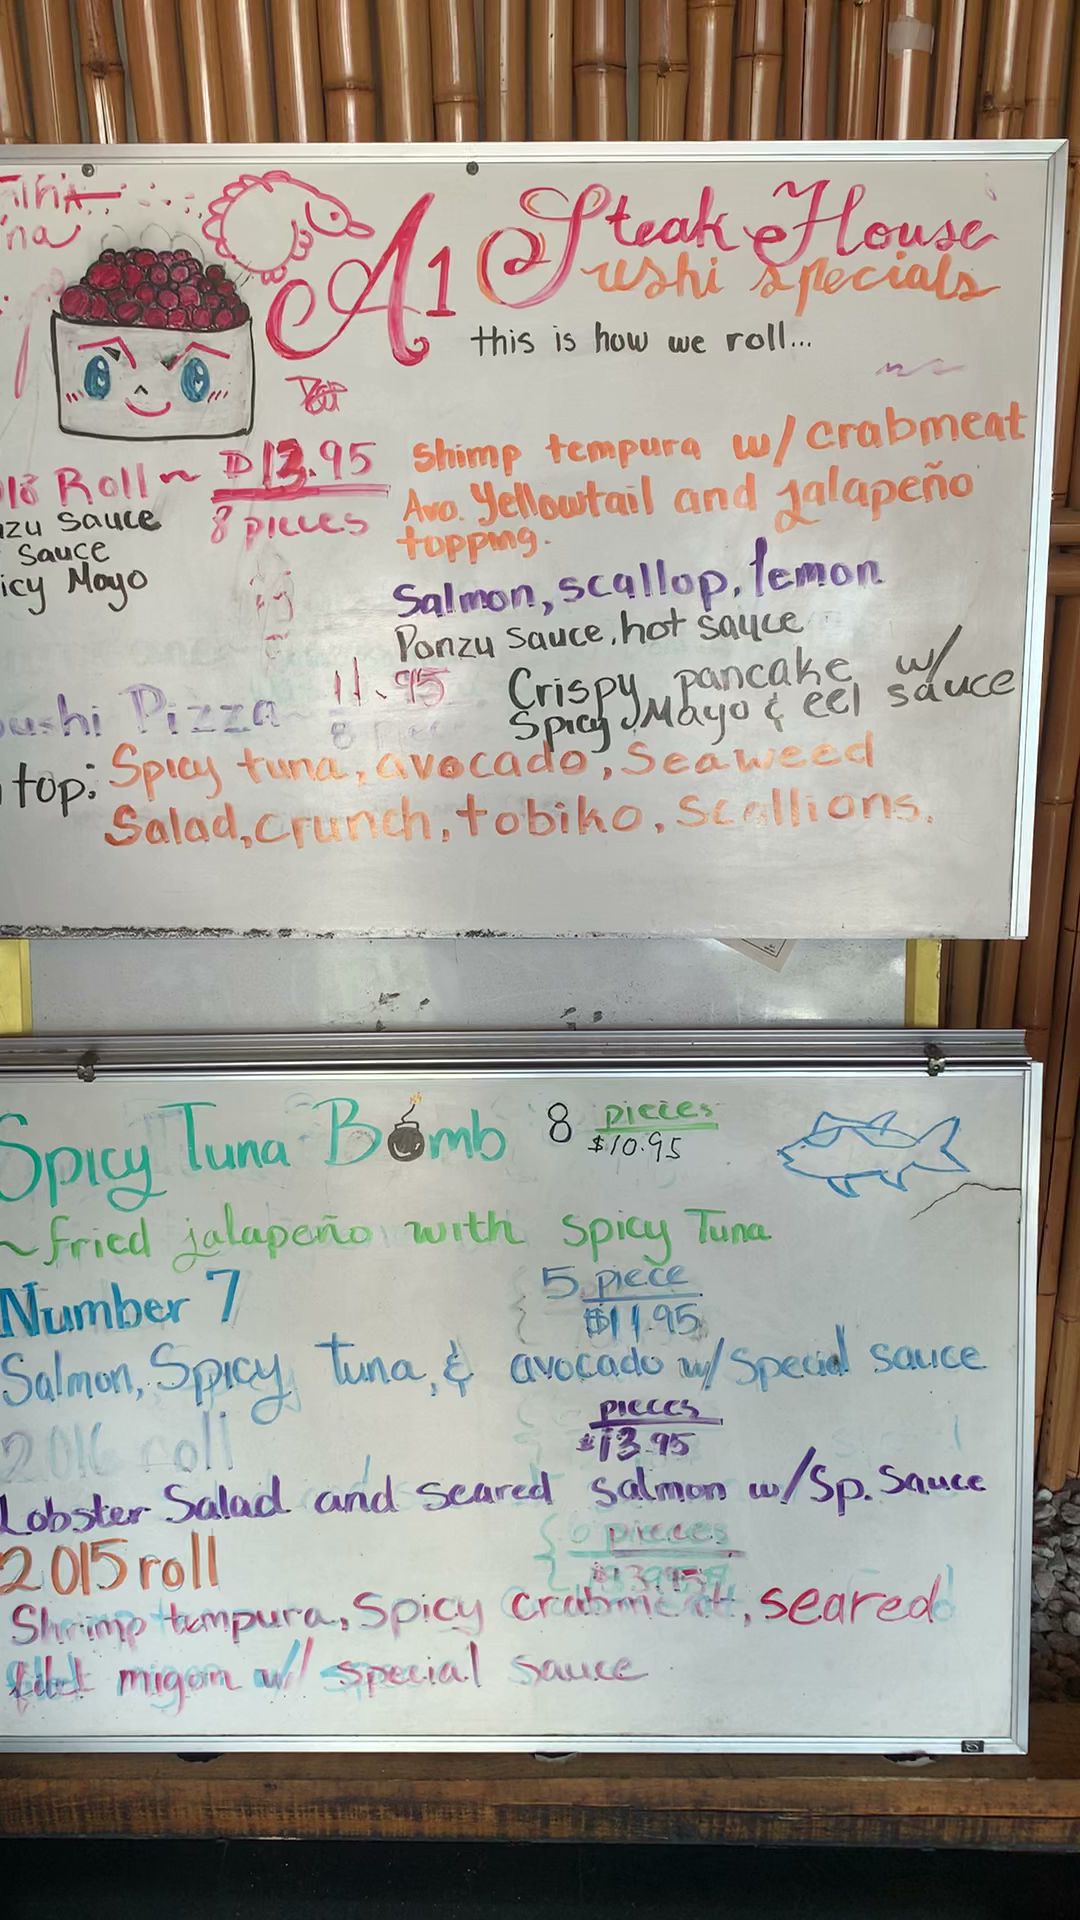 A1 Steak House
Sushi specials
this is how we roll...
Roll ~ 13.95
8 pieces
Sauce
Sauce
Mayo
Shimp tempura w/ crabmeat
Avo. Yellowtail and jalapeño
topping.
Salmon, scallop, lemon
Ponzu sauce, hot sauce
Pizza
11.95
8
Crispy pancake w/
Spicy Mayo & eel sauce
top: Spicy tuna, avocado, Seaweed
Salad, crunch, tobiko, Scallions.
Spicy Tuna Bomb 8 pieces
$10.95
~ fried jalapeño with Spicy Tuna
Number 7
5 piece
$11.95
Salmon, Spicy tuna, & avocado w/ Special sauce
2016 roll
pieces
$13.95
Lobster Salad and seared salmon w/ Sp. Sauce
2015 roll
pieces
Shrimp tempura, Spicy crabmeat, seared
migom w/ special sauce